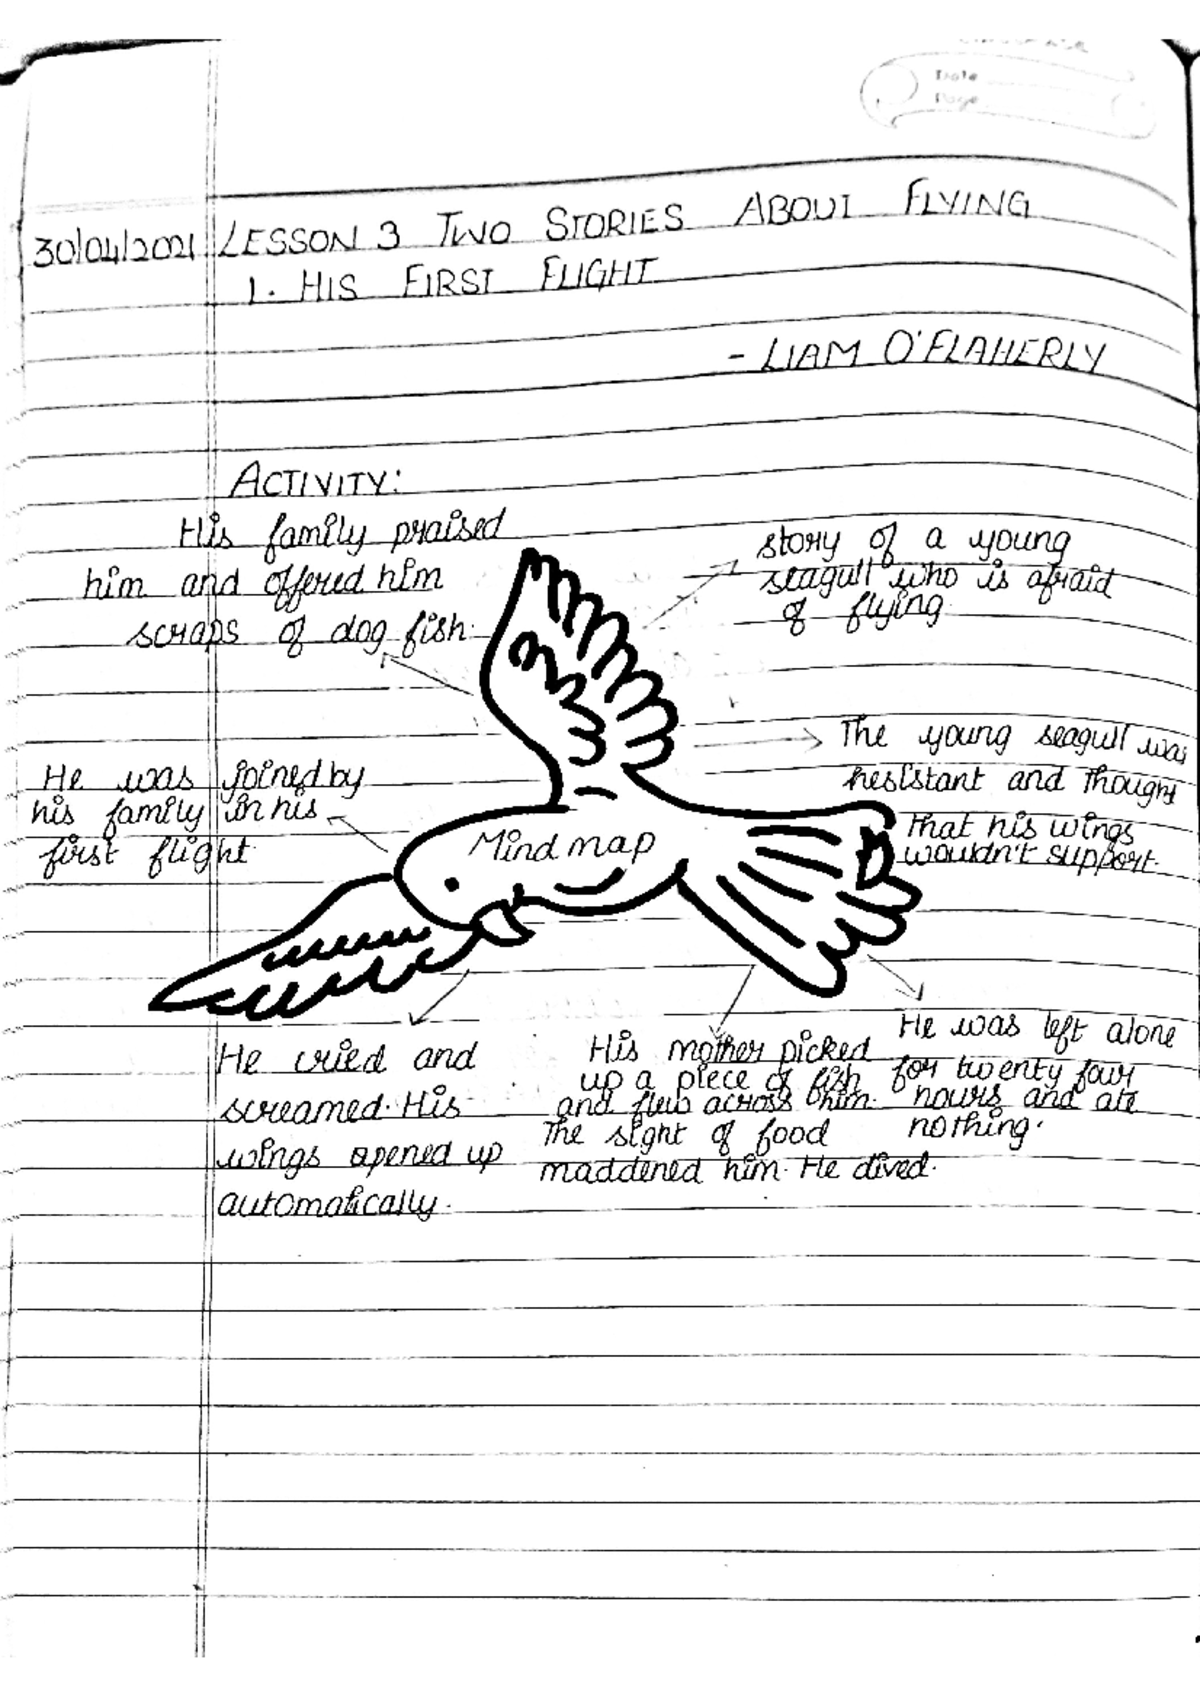 Date
Page
30/04/2021 LESSON 3 TWO STORIES ABOUT FLYING
1. HIS FIRST FLIGHT
- LIAM O'FLAHERLY
ACTIVITY:
His family praised
him and offered him
scraps of dog fish.
story of a young
seagull who is afraid
of flying.
The young seagull was
hesistant and thought
that his wings
wouldn't support.
He was joined by
his family in his
first flight
Mind map
He cried and
screamed. His
wings opened up
automatically.
His mother picked
up a piece of fish
and flew across him.
The sight of food
maddened him. He dived.
He was left alone
for twenty four
hours and ate
nothing.